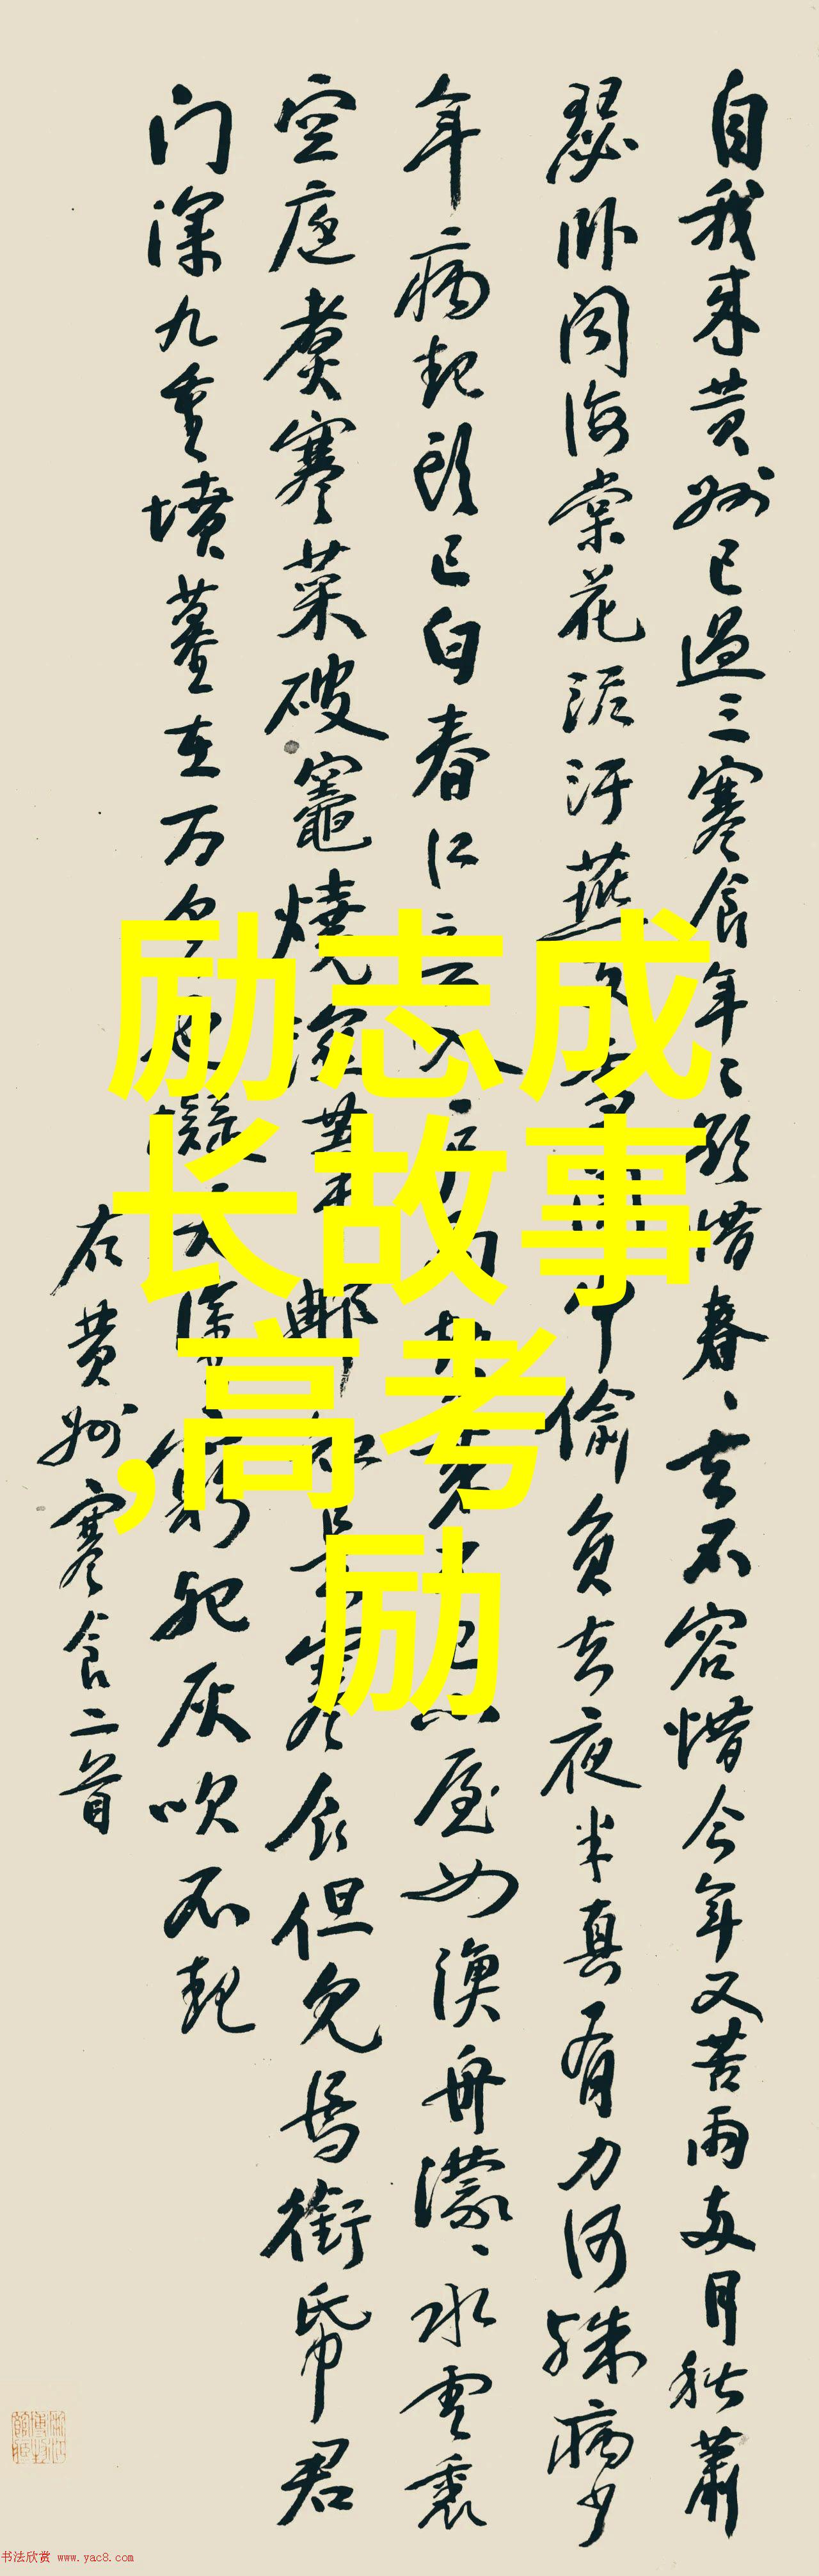 自我来黄州已過三寒食年〻欲惜春〻去不容惜今年又苦雨两月秋蕭
瑟卧闻海棠花泥汙燕支雪中偷負去夜半真有力何殊病少
年病起頭已白春江入户雨勢来不已小屋如漁舟濛〻水雲裏
空庖煑寒菜破竈燒濕葦那知是寒食但見烏銜帋君
门深九重墳墓在万里也擬哭途窮死灰吹不起
右黄州寒食二首
励志成
长故事
,高考
励
书法欣赏 www.yac8.com